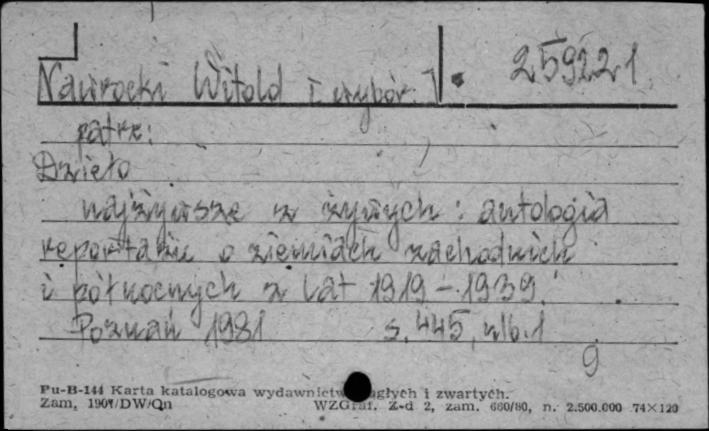 Nawrocki Witold [wybór] 259221
patrz:
Dzieło
najżywsze z żywych: antologia
reportażu o ziemiach zachodnich
i północnych z lat 1919-1939.
Poznań 1981 s. 445, nlb. 1
9
Pu-B-144 Karta katalogowa wydawnictw ciągłych i zwartych.
Zam, 1901/DW/Qn WZGraf. Z-d 2, zam. 660/80, n. 2.500.000 74×120